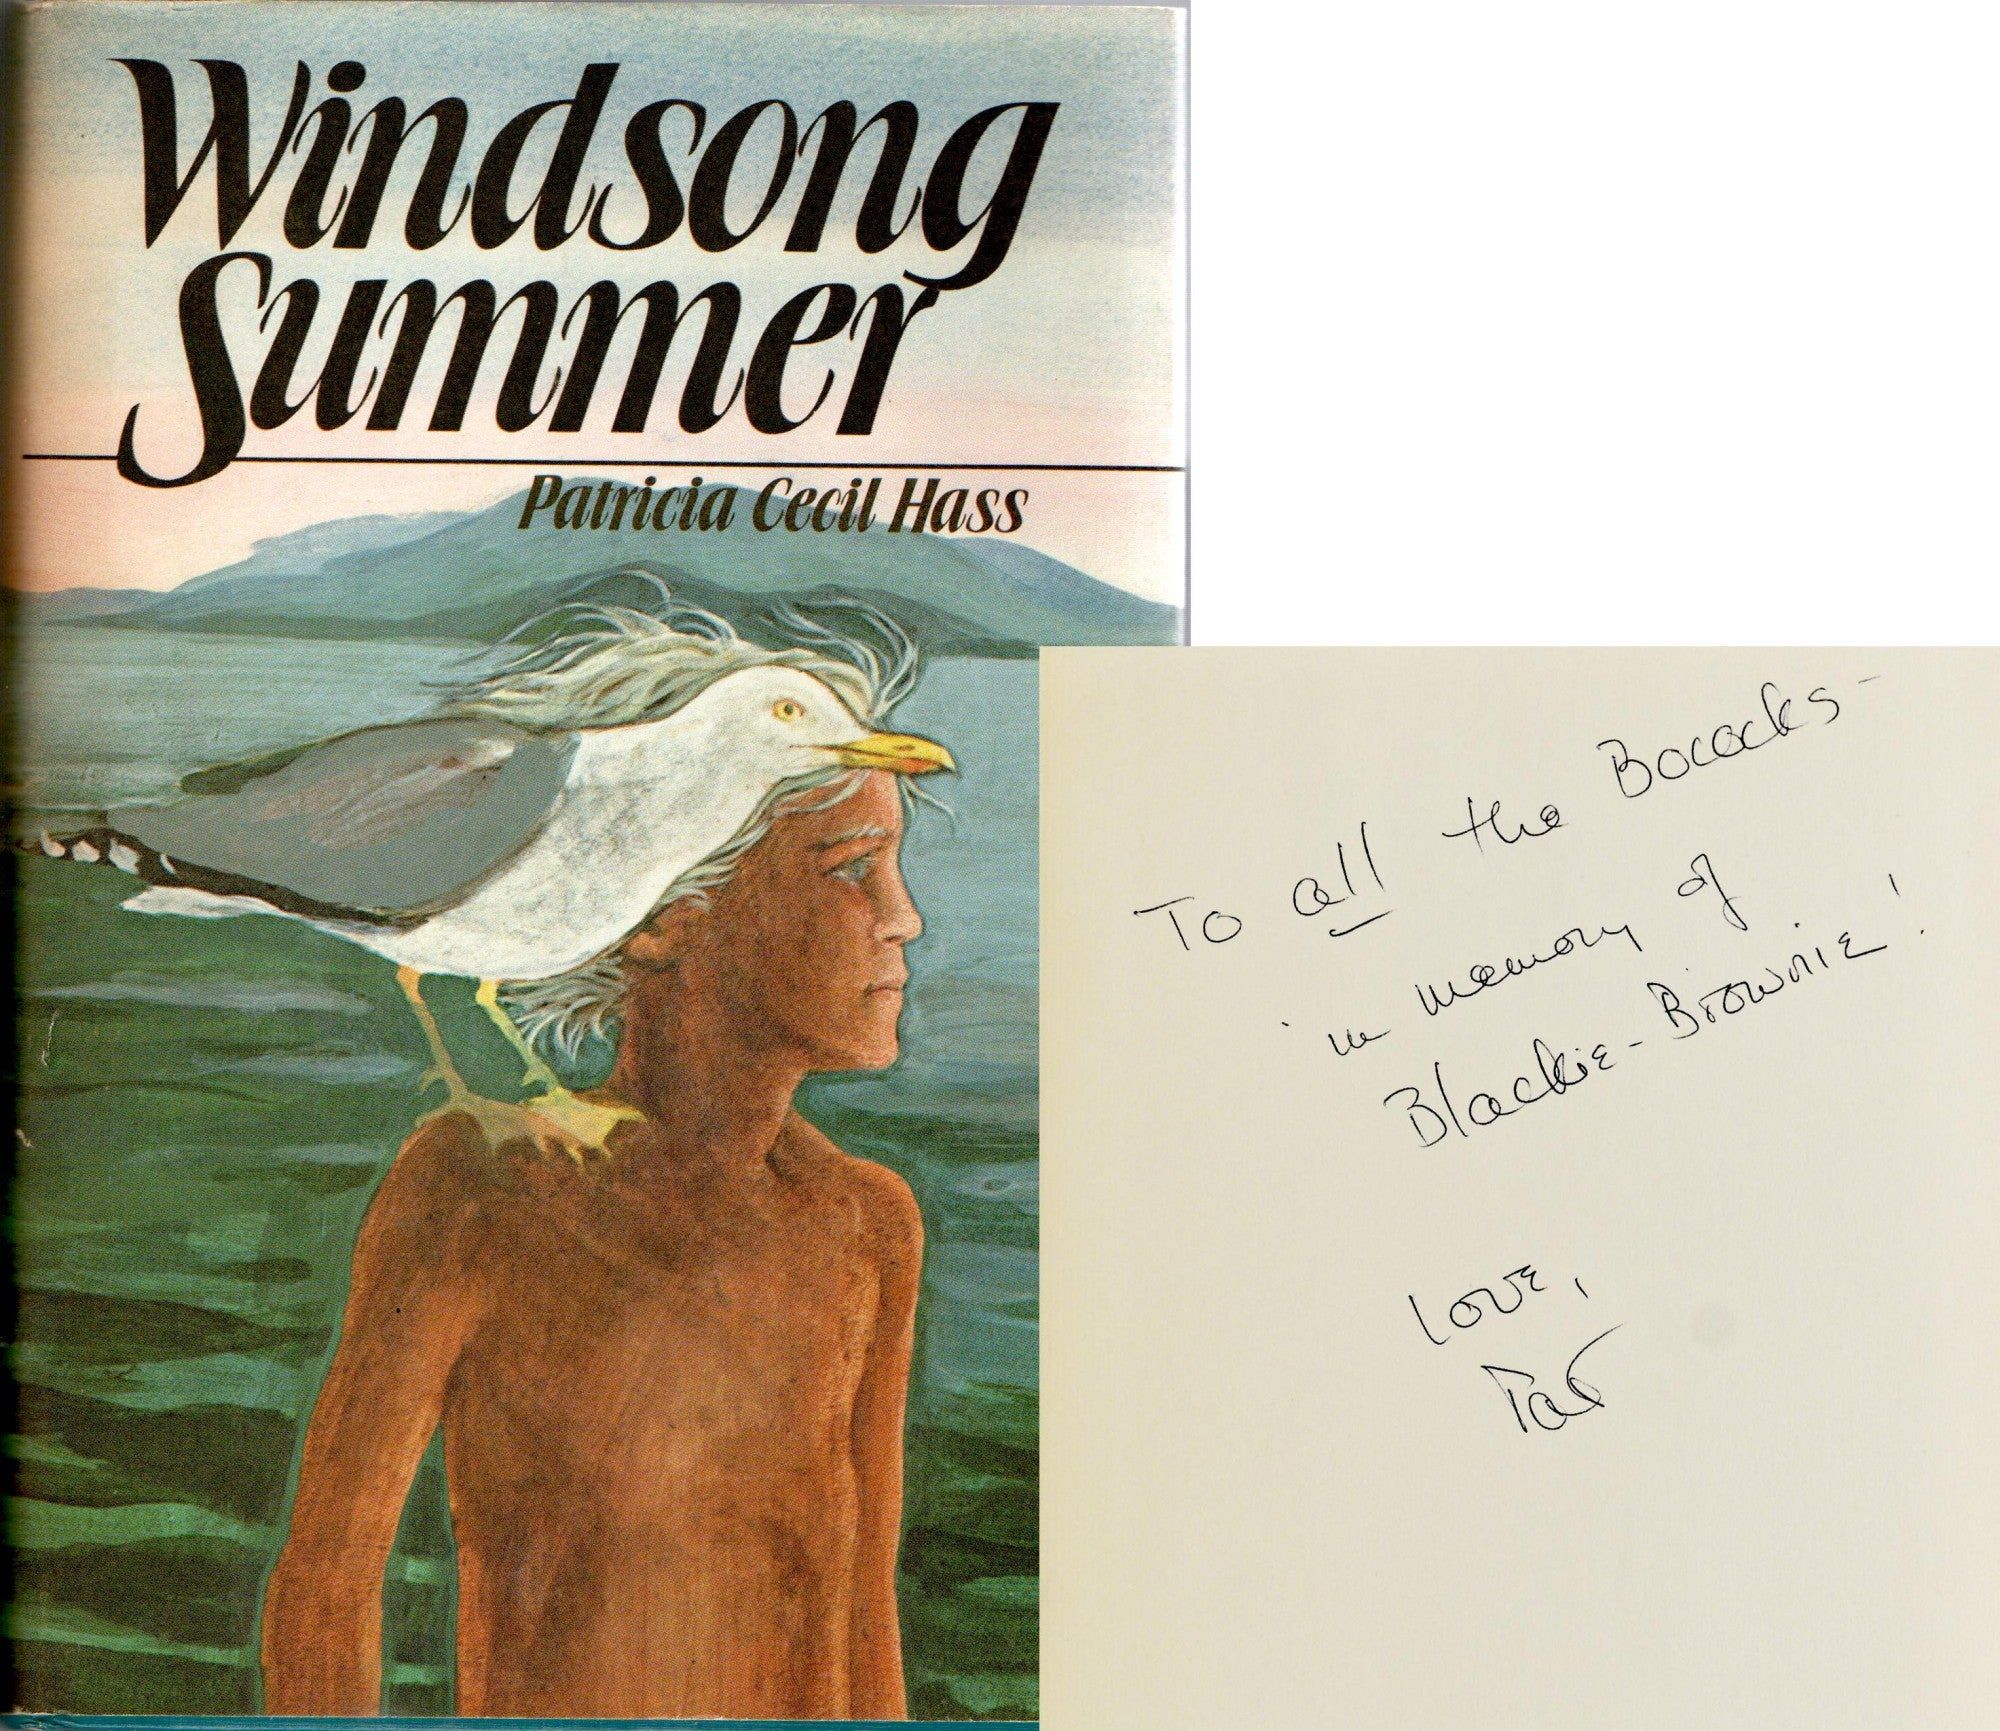 Windsong
Summer
Patricia Cecil Hass
To all the Bococks-
in memory of
Blackie-Brownie!
Love,
Pat